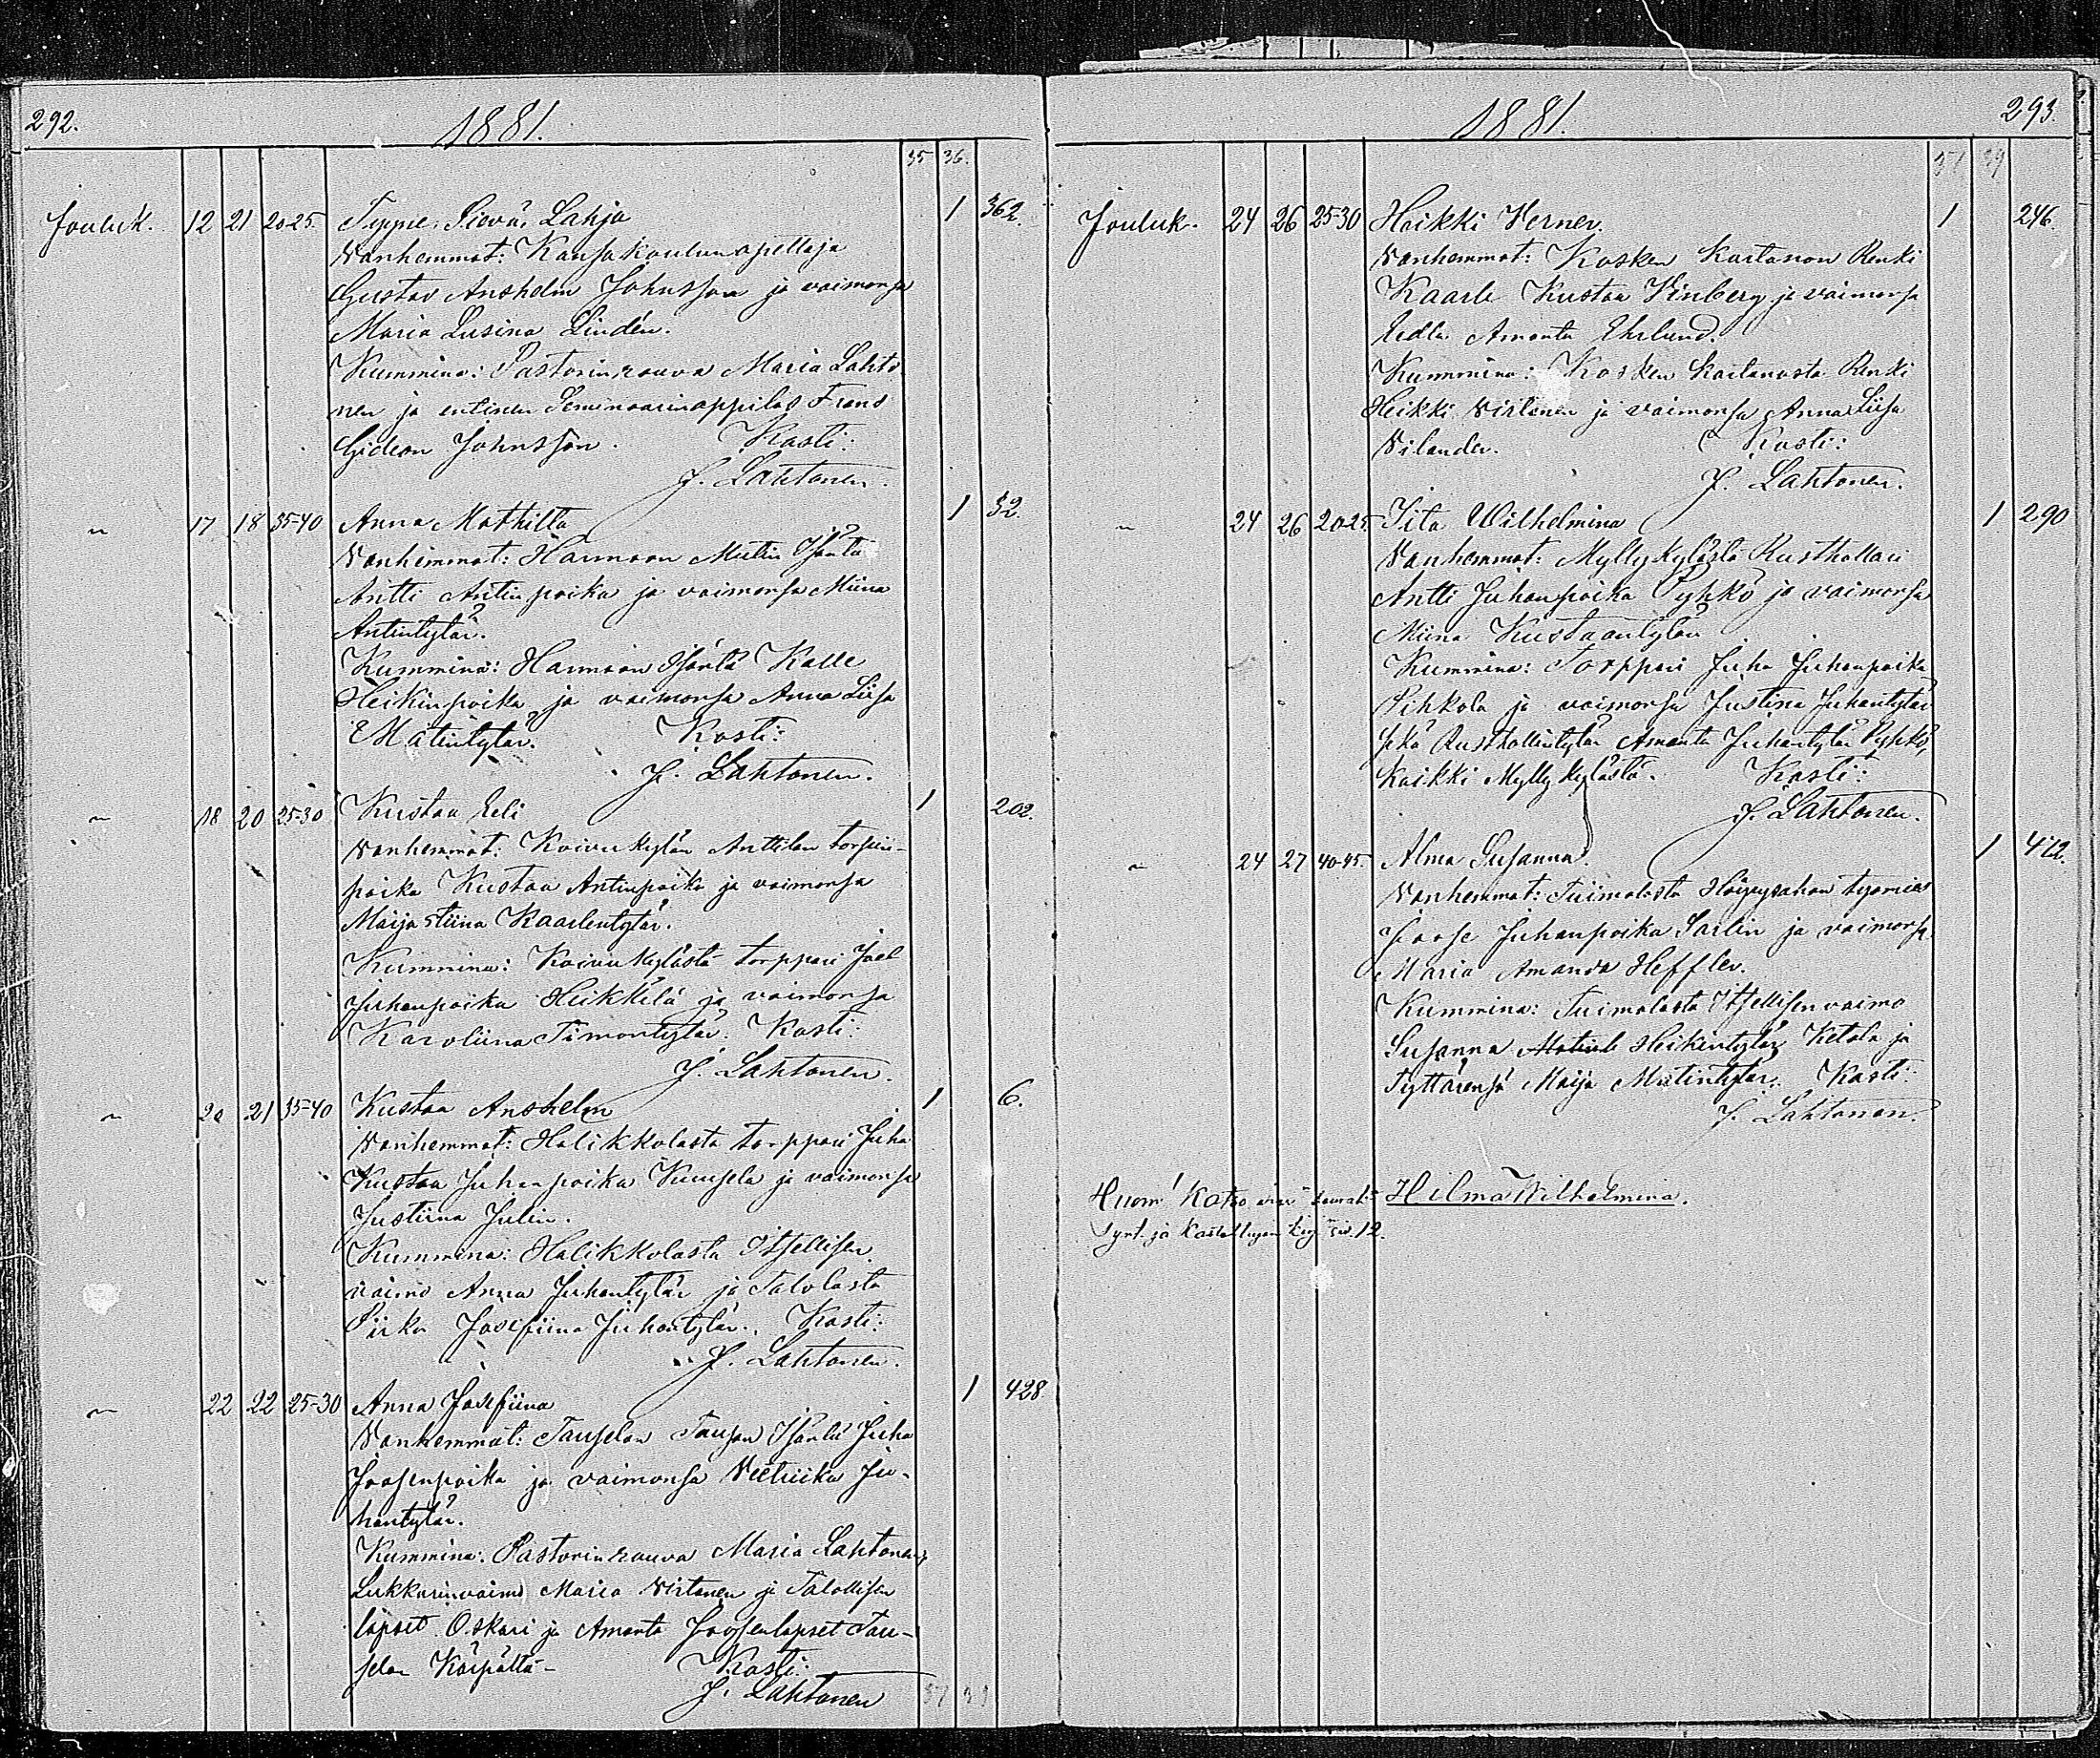 292.
1881.
35 36.
Jouluk. 12 21 20-25. Signe, Sievä, Lahja 1 362.
Vanhemmat: Kansakoulunopettaja
Gustav Anshelm Johnsson ja vaimonsa
Maria Lusina Lindén.
Kummina: Pastorin rouva Maria Lahto
nen ja entinen Seminaarinoppilas Frans
Gideon Johnsson. Kasti:
J. Lahtonen.
" 17 18 35-40 Anna Mathilta 1 32.
Vanhemmat: Isäntä
Antti Antinpoika ja vaimonsa Miina
Antintytär.
Kummina: Isäntä Kalle
Heikinpoika ja vaimonsa Anna Liisa
Matintytär. Kasti:
J. Lahtonen.
" 18 20 25-30 Kustaa Eeli 1 202.
Vanhemmat: Koivukylän Anttilan torpan-
poika Kustaa Antinpoika ja vaimonsa
Maija Stiina Kaarlentytär.
Kummina: Koivukylästä torppari Joel
Juhanpoika Heikkilä ja vaimonsa
Karoliina Simontytär. Kasti:
J. Lahtonen.
" 20 21 35-40 Kustaa Anshelm 1 6.
Vanhemmat: Halikkolasta torppari Juha
Kustaa Juhanpoika Kuusela ja vaimonsa
Justiina Julin.
Kummina: Halikkolasta Itsellisen
vaimo Anna Juhantytär ja Talolasta
Piika Josefiina Juhantytär. Kasti:
J. Lahtonen.
" 22 22 25-30 Anna Josefiina 1 428
Vanhemmat: Tauselan Isäntä Juha
Joosenpoika ja vaimonsa Veetriika Ju-
hantytär.
Kummina: Pastorin rouva Maria Lahtonen,
Lukkarin vaimo Maria Virtanen ja Talollisen
lapset Oskari ja Amanta Joosenlapset Tau-
selan Kärpältä- Kasti:
J. Lahtonen
37 39
293.
1881.
37 39
Jouluk. 24 26 25-30 Heikki Verner. 1 246.
Vanhemmat: Kosken Kartanon Renki
Kaarle Kustaa Vinberg ja vaimonsa
Eedla Amanta Ehrlund.
Kummina: Kosken Kartanosta Renki
Heikki Virtanen ja vaimonsa Anna Liisa
Vilander. Kasti:
J. Lahtonen.
" 24 26 20-25. Iita Wilhelmina 1 290
Vanhemmat: Myllykylästä Rusthollari
Antti Juhanpoika Pyhkö ja vaimonsa
Miina Kustaantytär
Kummina: Torppari Juha Juhanpoika
Pihkola ja vaimonsa Justina Juhantytär
sekä Rusthollintytär Amanta Juhantytär Pyhkö,
Kaikki Myllykylästä. Kasti:
J. Lahtonen.
" 24 27 40-45. Alma Susanna. 1 472.
Vanhemmat: Tuimalasta Höyrysahan työmies
Joose Juhanpoika Sarlin ja vaimonsa
Maria Amanda Heffler.
Kummina: Tuimalasta Itsellisen vaimo
Susanna Heikintytär Ketola ja
Tyttärensä Maija Matintytär. Kasti:
J. Lahtonen.
Huom! Katso Hilma Wilhelmina.
synt. ja kastettujen kirja siv. 12.